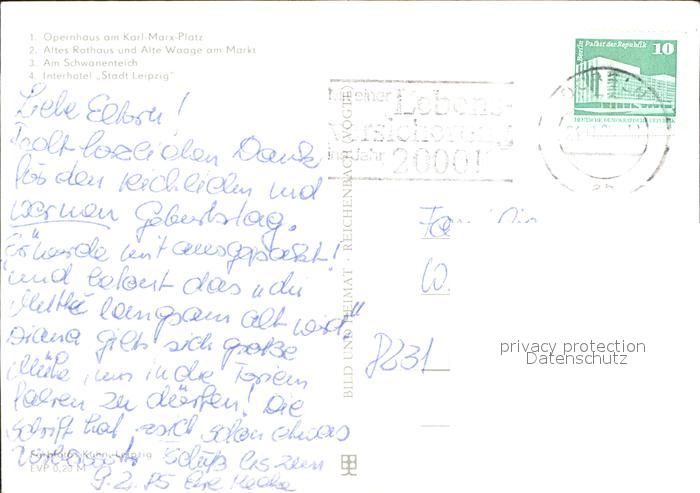 1. Opernhaus am Karl-Marx-Platz
2. Altes Rathaus und Alte Waage am Markt
3. Am Schwanenteich
4. Interhotel „Stadt Leipzig"
Liebe Eltern!
Recht herzlichen Dank
für den reichlichen und
warmen Geburtstag.
Er wurde mit ausgepackt!
und betont das „die
Mutti langsam alt wird"
Diana gibt sich große
Mühe, um in die Ferien
fahren zu dürfen! Die
Schrift hat sich schon etwas
verbessert. Tschüß bis zum
9.2.85 Eure
Farbfoto: Kühn, Leipzig
EVP 0,20 M
BILD UND HEIMAT · REICHENBACH (VOGTL)
Berlin Palast der Republik 10
DEUTSCHE DEMOKRATISCHE REPUBLIK
Mit einer Lebens-
versicherung
ins Jahr 2000!
Familie
W.
8231
privacy protection
Datenschutz